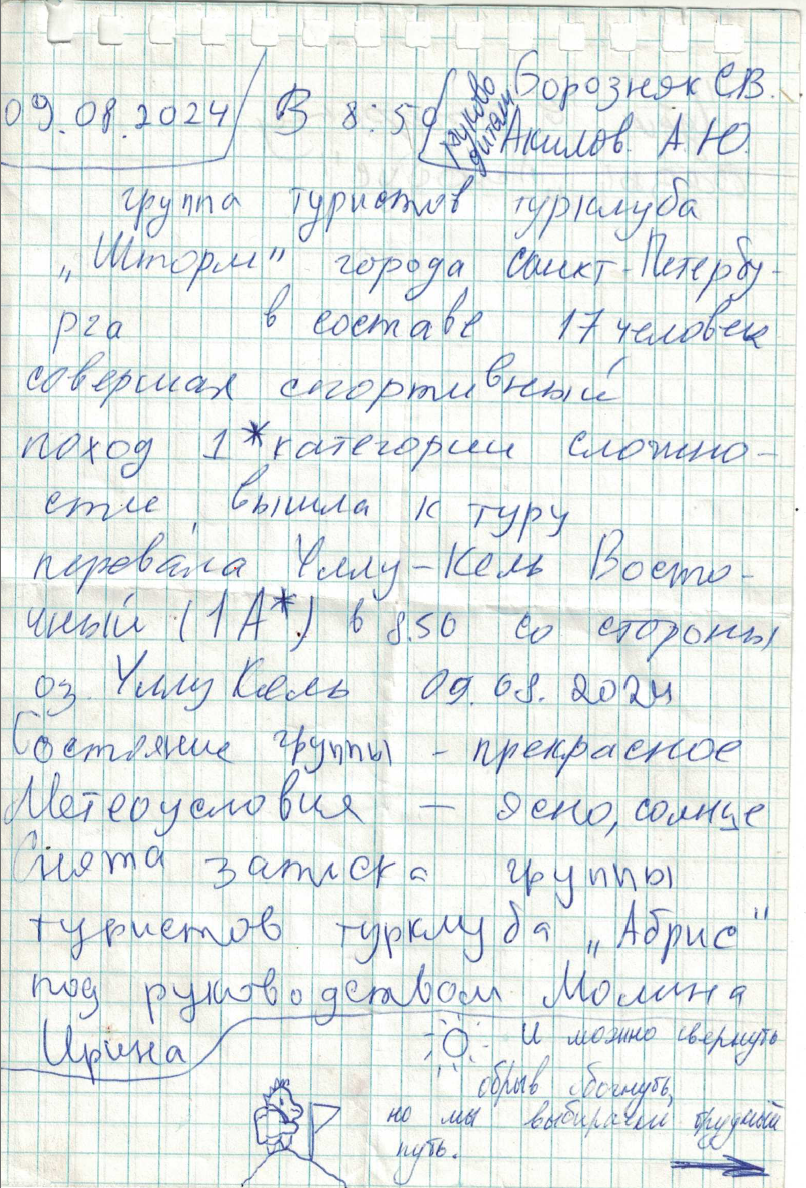 09.08.2024 В 8:50
руководители
Борозняк С.В.
Акилов А.Ю.
группа туристов турклуба
„Шторм" города Санкт-Петербу-
рга в составе 17 человек
совершая спортивный
поход 1*категории сложно-
сти, вышла к туру
перевала Уллу-Кель Восто-
чный (1А*) в 8.50 со стороны
оз. Уллу Кель 09.08.2024
Состояние группы - прекрасное
Метеоусловия — ясно, солнце
Снята записка группы
туристов турклуба „Абрис"
под руководством Молина
Ирина
И можно свернуть
обрыв обогнуть,
но мы выбираем трудный
путь.